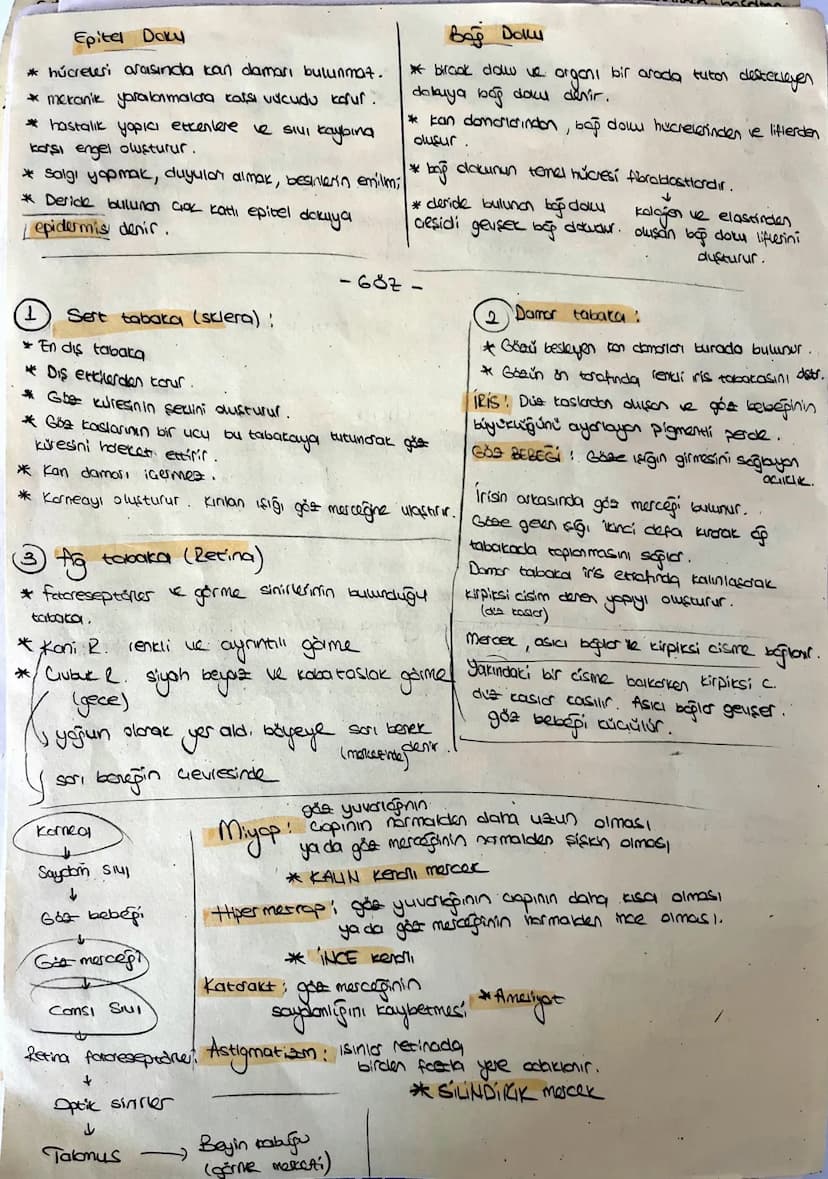 Epitel Doku
* hücreleri arasında kan damarı bulunmaz.
* mekanik yaralanmalara karşı vücudu korur.
* hastalık yapıcı etkenlere ve sıvı kaybına
karşı engel oluşturur.
* Salgı yapmak, duyuları almak, besinlerin emilimi
* Deride bulunan çok katlı epitel dokuya
epidermis denir.
Bağ Doku
* birçok doku ve organı bir arada tutan destekleyen
dokuya bağ doku denir.
* kan damarlarından, bağ doku hücrelerinden ve liflerden
oluşur.
* bağ dokunun temel hücresi fibroblastlardır.
* deride bulunan bağ doku
çeşidi gevşek bağ dokudur.
↓
kolajen ve elastinden
oluşan bağ doku liflerini
oluşturur.
- GÖZ -
1 Sert tabaka (sklera) :
* En dış tabaka
* Dış etkilerden korur.
* Göz küresinin şeklini oluşturur.
* Göz kaslarının bir ucu bu tabakaya tutunarak göz
küresini hareket ettirir.
* Kan damarı içermez.
* Korneayı oluşturur. Kırılan ışığı göz merceğine ulaştırır.
2 Damar tabaka :
* Gözü besleyen kan damarları burada bulunur.
* Gözün ön tarafında renkli iris tabakasını
İRİS : Düz kaslardan oluşan ve göz bebeğinin
büyüklüğünü ayarlayan pigmentli perde.
GÖZ BEBEĞİ : Göze ışığın girmesini sağlayan
açıklık.
İrisin arkasında göz merceği bulunur.
Göze gelen ışığı ikinci defa kırarak ağ
tabakada toplanmasını sağlar.
Damar tabaka iris etrafında kalınlaşarak
kirpiksi cisim denen yapıyı oluşturur.
(düz kaslar)
Mercek, asıcı bağlar ile kirpiksi cisme bağlanır.
Yakındaki bir cisme bakarken kirpiksi c.
düz kaslar kasılır. Asıcı bağlar gevşer.
göz bebeği küçülür.
3 Ağ tabaka (Retina)
* fotoreseptörler ve görme sinirlerinin bulunduğu
tabaka.
* Koni R. renkli ve ayrıntılı görme
* Çubuk R. siyah beyaz ve kaba taslak görme
(gece)
yoğun olarak yer aldı. bölgeye sarı benek
denir.
sarı beneğin çevresinde
Kornea
↓
Saydam sıvı
↓
Göz bebeği
↓
Göz merceği
↓
Camsı Sıvı
Retina fotoreseptörler
↓
Optik sinirler
↓
Talamus → Beyin kabuğu
(görme merkezi)
göz yuvarlağının
Miyop : çapının normalden daha uzun olması
ya da göz merceğinin normalden şişkin olması
* KALIN kenarlı mercek
Hipermetrop : göz yuvarlağının çapının daha kısa olması
ya da göz merceğinin normalden ince olması.
* İNCE kenarlı
Katarakt : göz merceğinin
saydamlığını kaybetmesi * Ameliyat
Astigmatizm : ışınlar retinada
birden fazla yere odaklanır.
* SİLİNDİRİK mercek